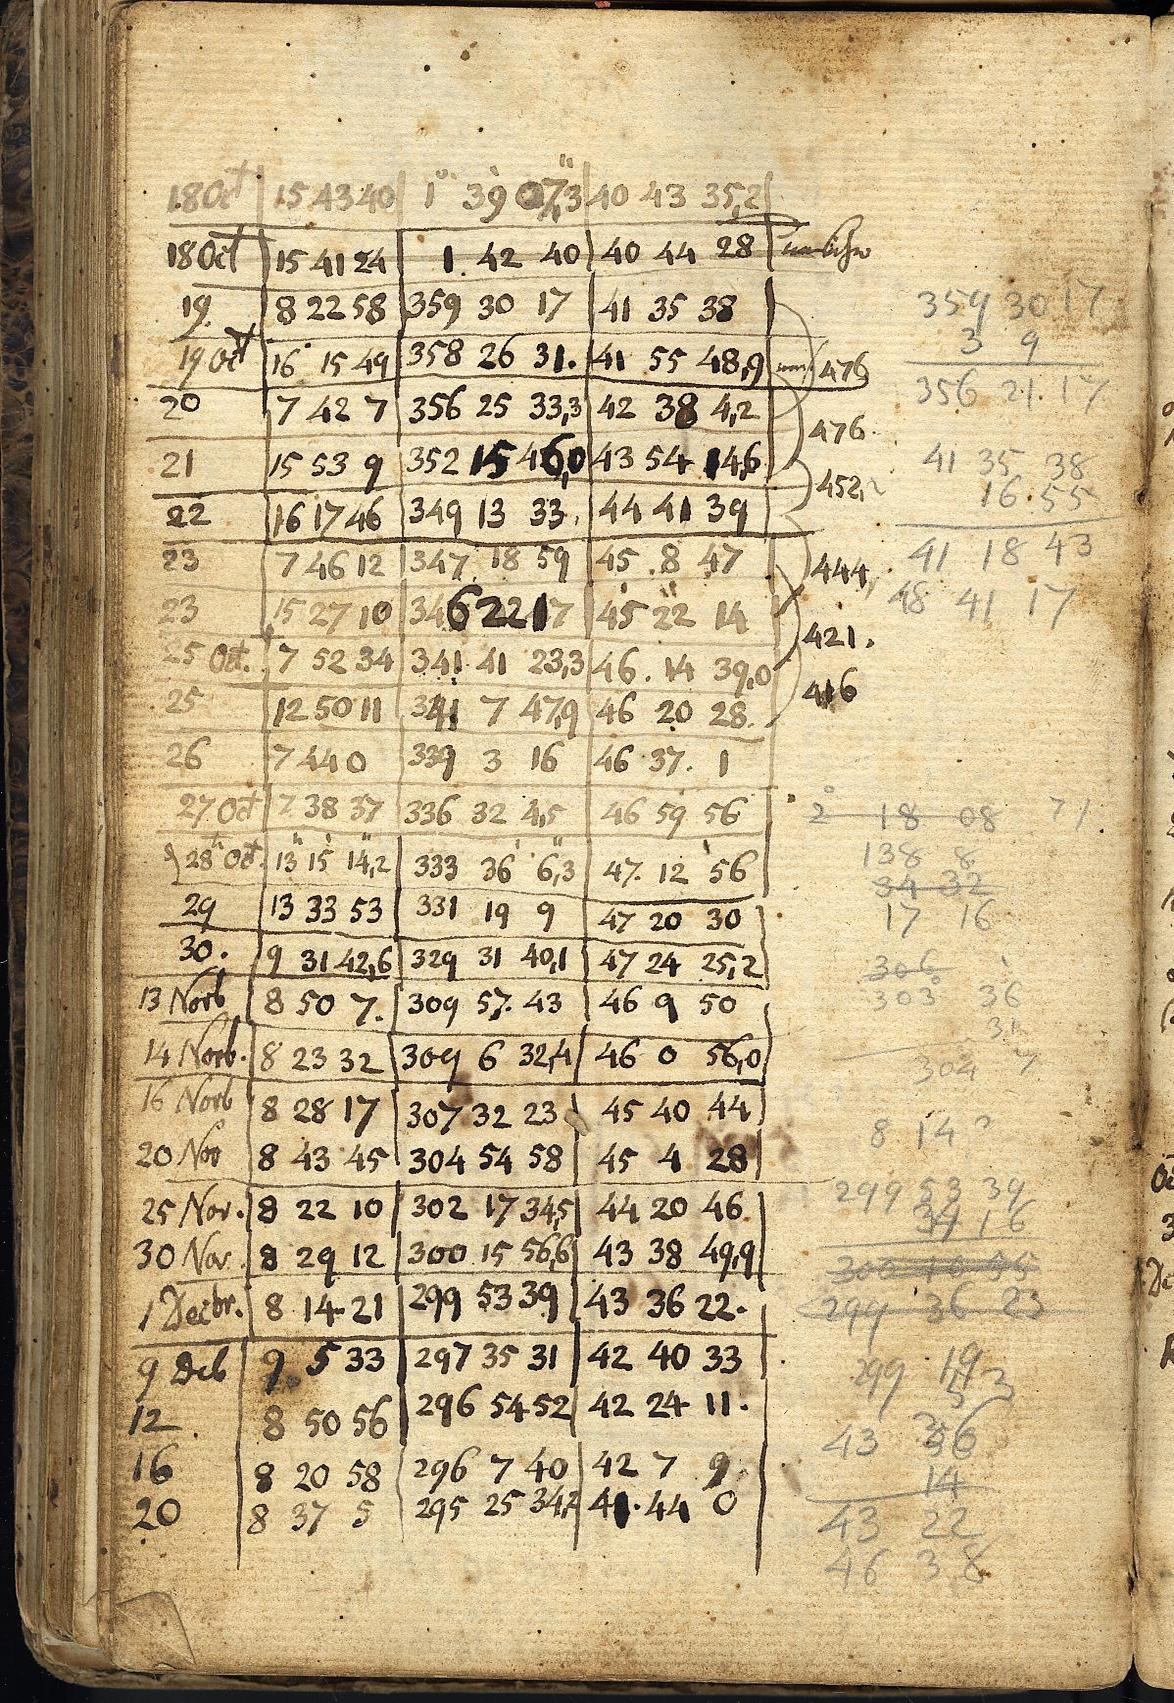 18 Oct 15 43 40 1° 39' 07,3'' 40 43 35,2
18 Oct 15 41 24 1. 42 40 40 44 28
19. 8 22 58 359 30 17 41 35 38
19 Oct 16 15 49 358 26 31. 41 55 48,9 476
20 7 42 7 356 25 33,3 42 38 4,2 476
21 15 53 9 352 15 46,0 43 54 14,6 452
22 16 17 46 349 13 33. 44 41 39
23 7 46 12 347 18 59 45 . 8 47 444
23 15 27 10 346 22 17 45 22 14 421.
25 Oct. 7 52 34 341 41 23,3 46. 14 39,0 416
25 12 50 11 341 7 47,9 46 20 28.
26 7 44 0 339 3 16 46 37. 1
27 Oct 7 38 37 336 32 4,5 46 59 56
28 Oct. 13 15 14,2 333 36 6,3 47. 12 56
29 13 33 53 331 19 9 47 20 30
30. 9 31 42,6 329 31 40,1 47 24 25,2
13 Novb 8 50 7. 309 57. 43 46 9 50
14 Novb. 8 23 32 309 6 32,4 46 0 56,0
16 Novb 8 28 17 307 32 23 45 40 44
20 Nov 8 43 45 304 54 58 45 4 28
25 Nov. 8 22 10 302 17 34,5 44 20 46
30 Nov. 8 29 12 300 15 56,6 43 38 49,9
1 Decbr. 8 14 21 299 53 39 43 36 22.
9 Decb 9 5 33 297 35 31 42 40 33
12. 8 50 56 296 54 52 42 24 11.
16 8 20 58 296 7 40 42 7 9
20 8 37 5 295 25 34,2 41. 44 0
359 30 17
3 9
356 21. 17
41 35 38
16. 55
41 18 43
48 41 17
2° 18 08 71
138 8
34 32
17 16
306
303 36
304 7
8 14
299 53 39
34 16
299 36 23
299 19
53
43 36
14
43 22
46 38